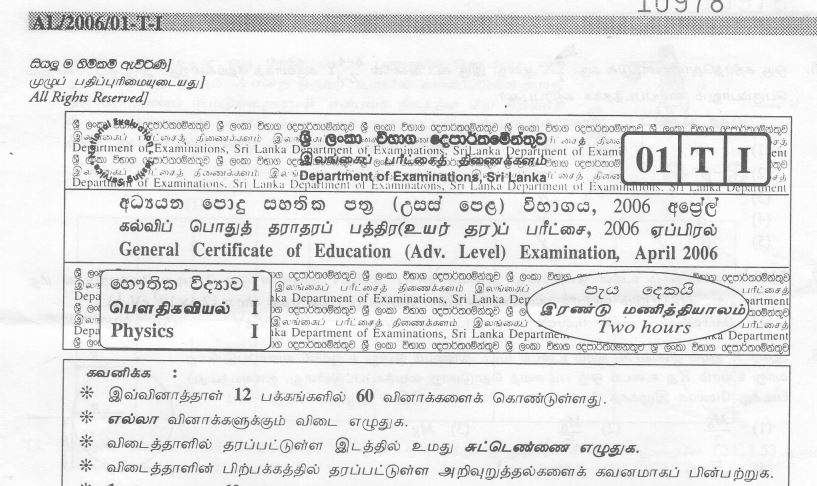 10978
AL/2006/01-T-I
සියලු ම හිමිකම් ඇවිරිණි]
முழுப் பதிப்புரிமையுடையது]
All Rights Reserved]
ශ්‍රී ලංකා විභාග දෙපාර්තමේන්තුව
இலங்கைப் பரீட்சைத் திணைக்களம்
Department of Examinations, Sri Lanka
01 T I
අධ්‍යයන පොදු සහතික පත්‍ර (උසස් පෙළ) විභාගය, 2006 අප්‍රේල්
கல்விப் பொதுத் தராதரப் பத்திர(உயர் தர)ப் பரீட்சை, 2006 ஏப்பிரல்
General Certificate of Education (Adv. Level) Examination, April 2006
භෞතික විද්‍යාව I
பௌதிகவியல் I
Physics I
පැය දෙකයි
இரண்டு மணித்தியாலம்
Two hours
கவனிக்க :
* இவ்வினாத்தாள் 12 பக்கங்களில் 60 வினாக்களைக் கொண்டுள்ளது.
* எல்லா வினாக்களுக்கும் விடை எழுதுக.
* விடைத்தாளில் தரப்பட்டுள்ள இடத்தில் உமது சுட்டெண்ணை எழுதுக.
* விடைத்தாளின் பிற்பக்கத்தில் தரப்பட்டுள்ள அறிவுறுத்தல்களைக் கவனமாகப் பின்பற்றுக.